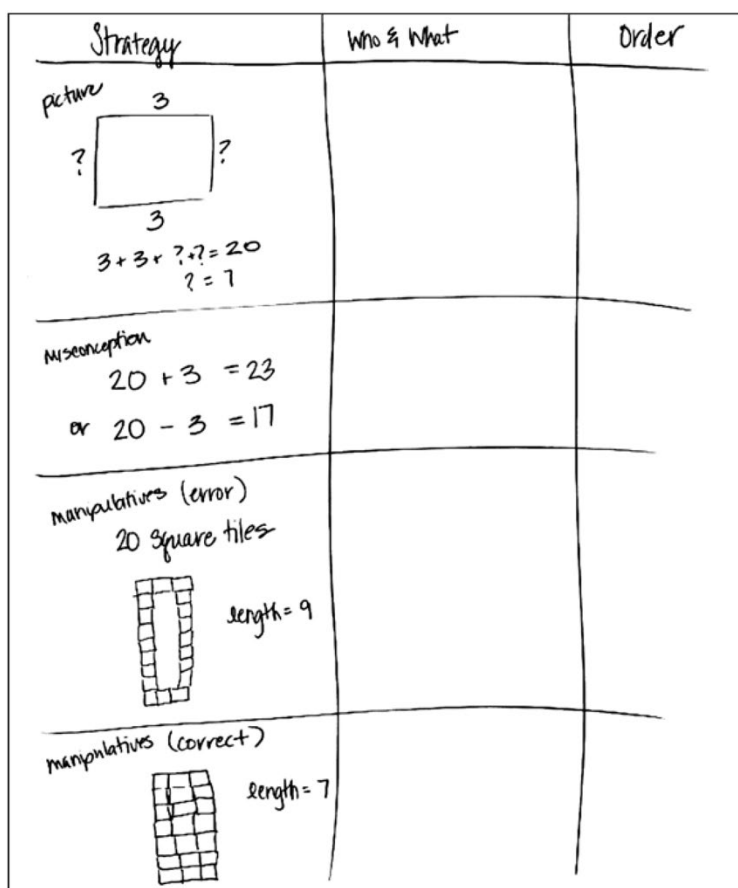 Strategy
Who & What
Order
picture
3
?
?
3
3 + 3 + ? + ? = 20
? = 7
misconception
20 + 3 = 23
or 20 - 3 = 17
manipulatives (error)
20 square tiles
length = 9
manipulatives (correct)
length = 7